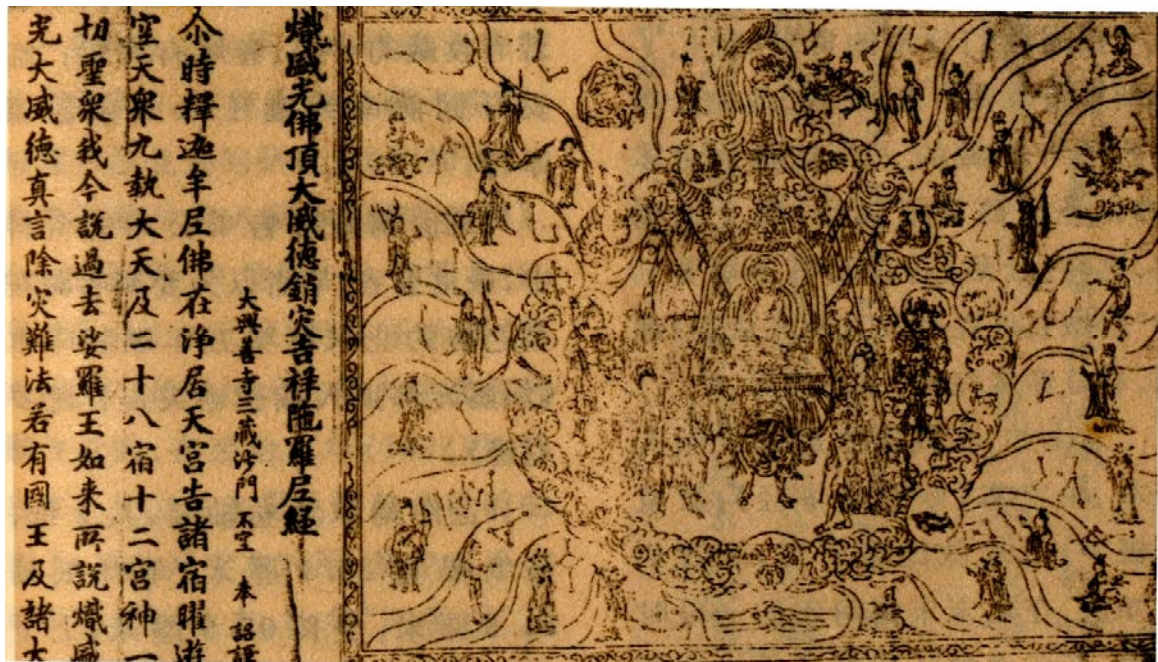 熾盛光佛頂大威德銷灾吉祥陁羅尼經
大興善寺三藏沙門 不空 奉 詔譯
尒時釋迦牟尼佛在浄居天宮告諸宿曜遊
空天衆九執大天及二十八宿十二宮神一
切聖衆我今說過去娑羅王如来所說熾盛
光大威德真言除灾難法若有國王及諸大